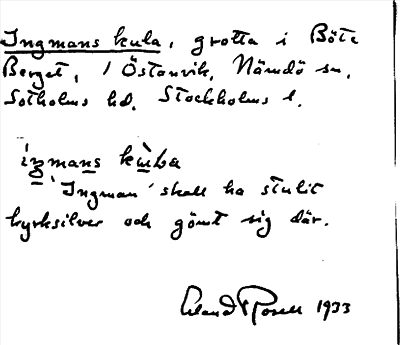 Ingmans kula, grotta i Böte
Berget, i Östanvik, Nämdö sn,
Sotholms hd, Stockholms l.
ingmans kùla
'Ingman' skall ha stulit
kyrksilver och gömt sig där.
Erland Rosell 1933